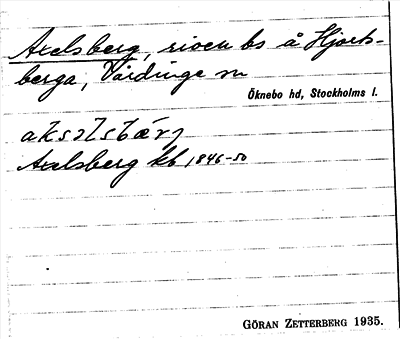 Axelsberg, riven bs å Hjorts-
berga, Vårdinge sn
Öknebo hd, Stockholms l.
aksəlsbærj
Axelsberg kb 1846-50
GÖRAN ZETTERBERG 1935.